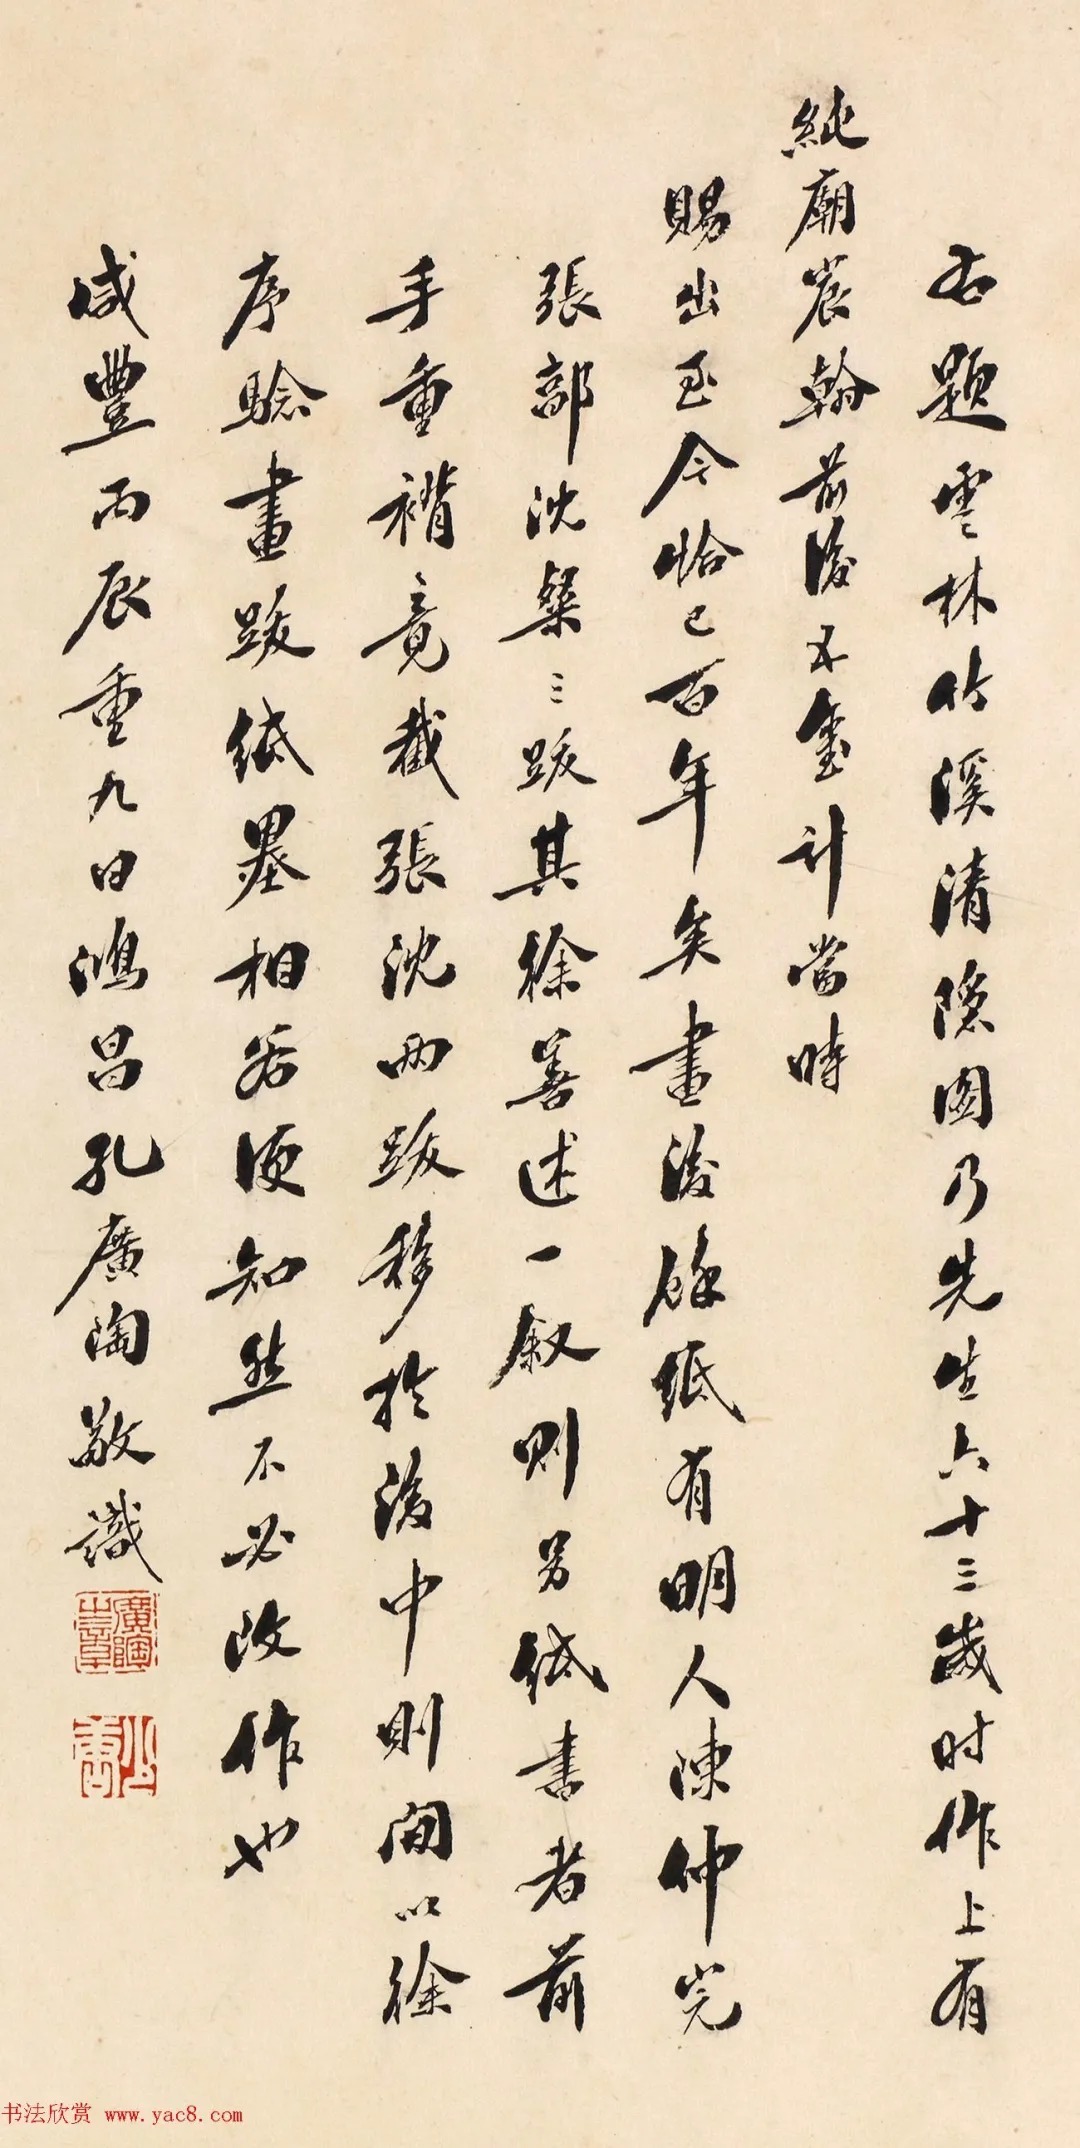 右題雲林竹溪清隱圖乃先生六十三歲时作上有
純廟宸翰前後五璽計當時
賜出至今恰已百年矣畫後餘紙有明人陳仲完
張部沈粲三跋其徐善述一叙則另紙書者前
手重褙竟截張沈兩跋移於後中則間以徐
序驗畫跋紙墨相若便知然不必改作也
咸豐丙辰重九日鴻昌孔廣陶敬識
廣陶之章
少唐
书法欣赏 www.yac8.com